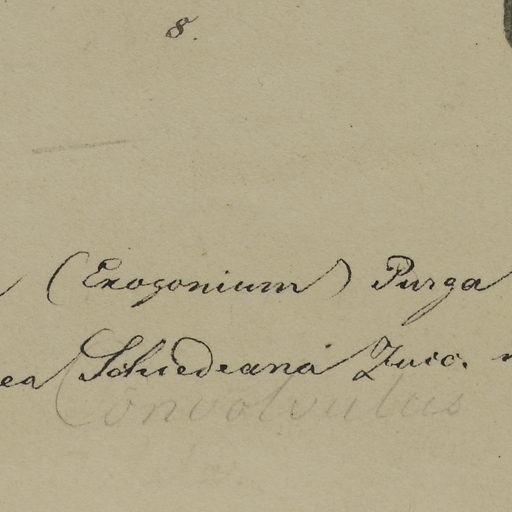 8.
(Exogonium) Purga
ea Schiedeana Zucc.
Convolvulus